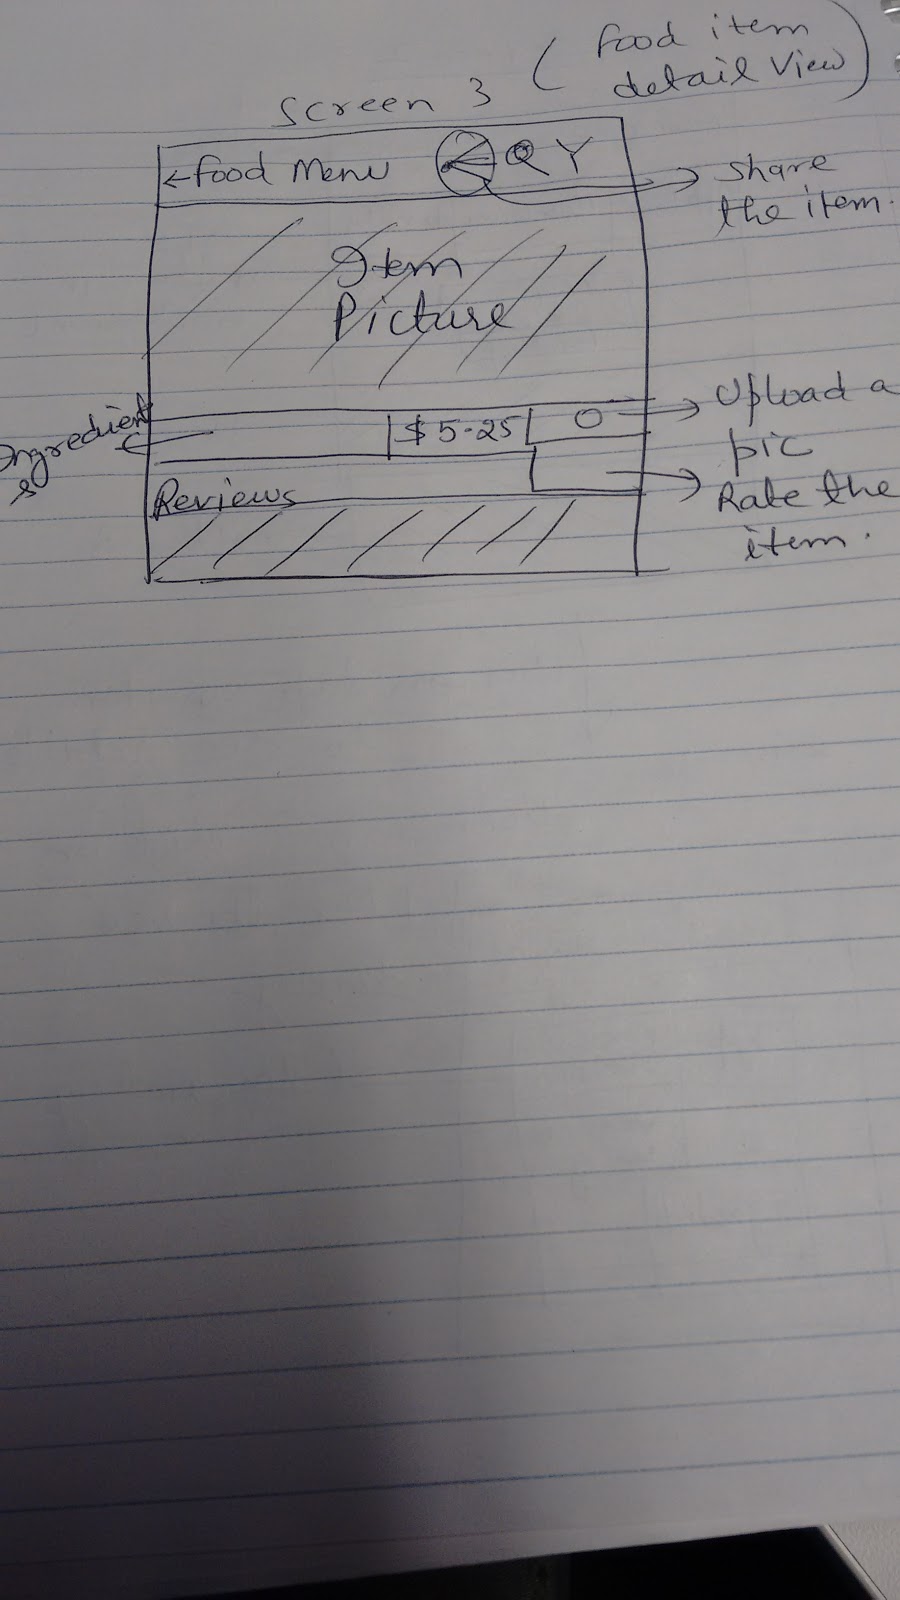 Screen 3 (food item
detail view)
← Food Menu
Share
the item.
Item
Picture
Ingredient
s
$ 5-25
Upload a
pic
Rate the
item.
Reviews